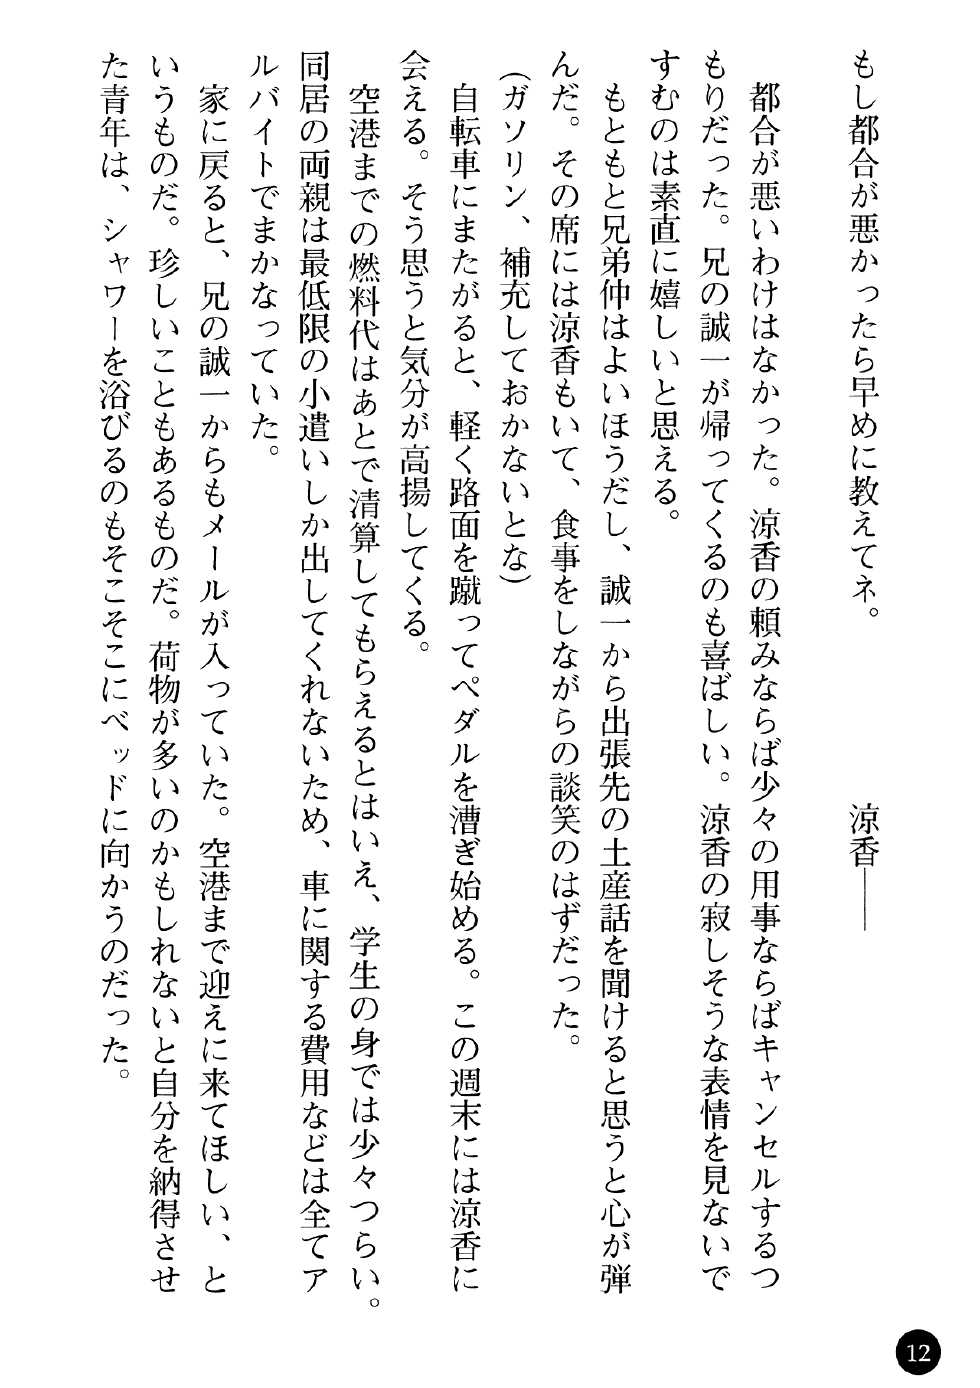 もし都合が悪かったら早めに教えてネ。　　　　　涼香――
　都合が悪いわけはなかった。涼香の頼みならば少々の用事ならばキャンセルするつ
もりだった。兄の誠一が帰ってくるのも喜ばしい。涼香の寂しそうな表情を見ないで
すむのは素直に嬉しいと思える。
　もともと兄弟仲はよいほうだし、誠一から出張先の土産話を聞けると思うと心が弾
んだ。その席には涼香もいて、食事をしながらの談笑のはずだった。
（ガソリン、補充しておかないとな）
　自転車にまたがると、軽く路面を蹴ってペダルを漕ぎ始める。この週末には涼香に
会える。そう思うと気分が高揚してくる。
　空港までの燃料代はあとで清算してもらえるとはいえ、学生の身では少々つらい。
同居の両親は最低限の小遣いしか出してくれないため、車に関する費用などは全てア
ルバイトでまかなっていた。
　家に戻ると、兄の誠一からもメールが入っていた。空港まで迎えに来てほしい、と
いうものだ。珍しいこともあるものだ。荷物が多いのかもしれないと自分を納得させ
た青年は、シャワーを浴びるのもそこそこにベッドに向かうのだった。
12